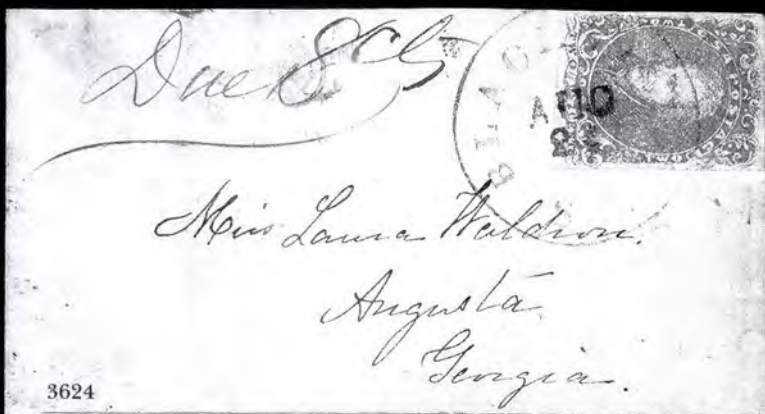 Due 8 cts
BLAC
AUG
Miss Laura Waldron.
Augusta
Georgia.
3624